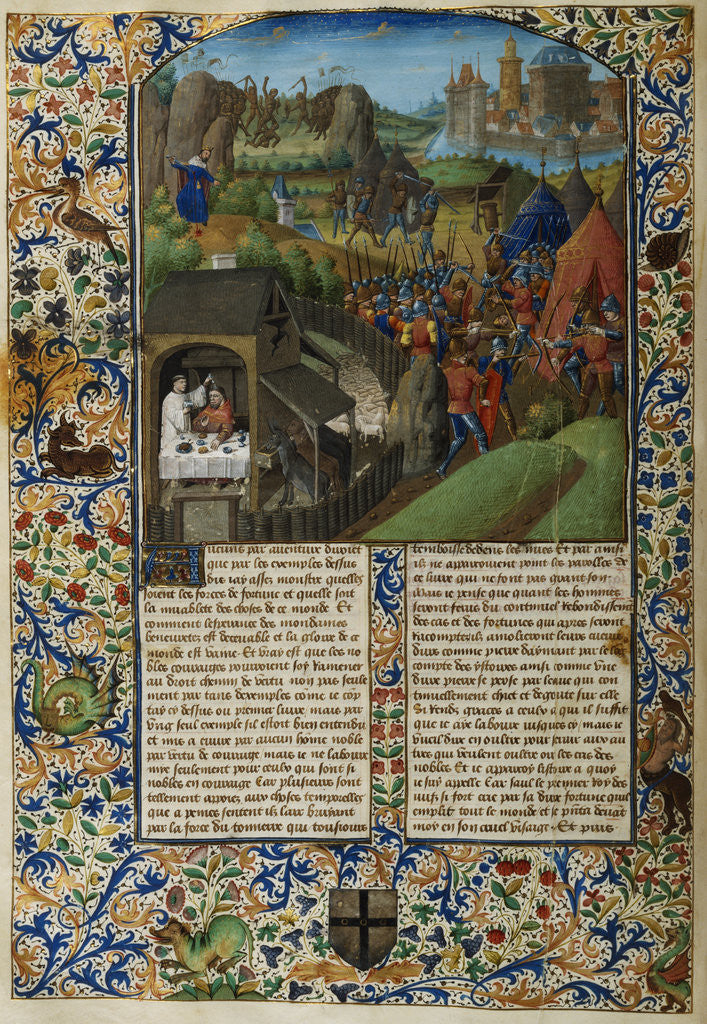 Aucuns par auenture diroiet
que par les exemples dessus
dis iay asses monstre quelles
soient les forces de fortune et quelle soit
la muablete des choses de ce monde Et
comment lesperance des mondaines
beneuretes est deceuable et la gloire de ce
monde est vaine. Et vray est que les no
bles couraiges pourroient soy ramener
au droit chemin de vertu non pas seule
ment par tans dexemples come ie cop
tay cy dessus ou premier liure mais par
vng seul exemple sil estoit bien entendu
et mis a euure par aucun home noble
par vertu de courage mais ie ne laboure
mye seulement pour ceulx qui sont si
nobles en courage Car plusieurs sont
tellement appoiez aux choses temporelles
que a peines sentent ilz lair bruyant
par la force du tonnerre qui tousiours
temboisse dedens les nues Et par ainsi
ilz ne apparcoiuent point les parolles de
ce liure qui ne font pas grant son
Mais ie pense que quant les hommes
seront ferus du continuel rebondissement
des cas et des fortunes qui apres seront
racomptees ilz amolieront leurs cueurs
durs comme pierre daymant par le long
compte des ystoires ainsi comme vne
dure pierre se perse par leaue qui con
tinuellement chiet et degoute sur elle
Si rends graces a ceulx a qui il suffit
que ie aye laboure iusques cy mais ie
vueil dire en oultre pour aux au
tres qui veulent oultre oir les cas des
nobles Et ie apparcoy lystoire a quoy
ie suy appelle Car saul le premier roy des
iuifz si fort crie par sa dure fortune quil
emplit tout le monde et se pnta deuant
moy en son cruel visaige. Et puis